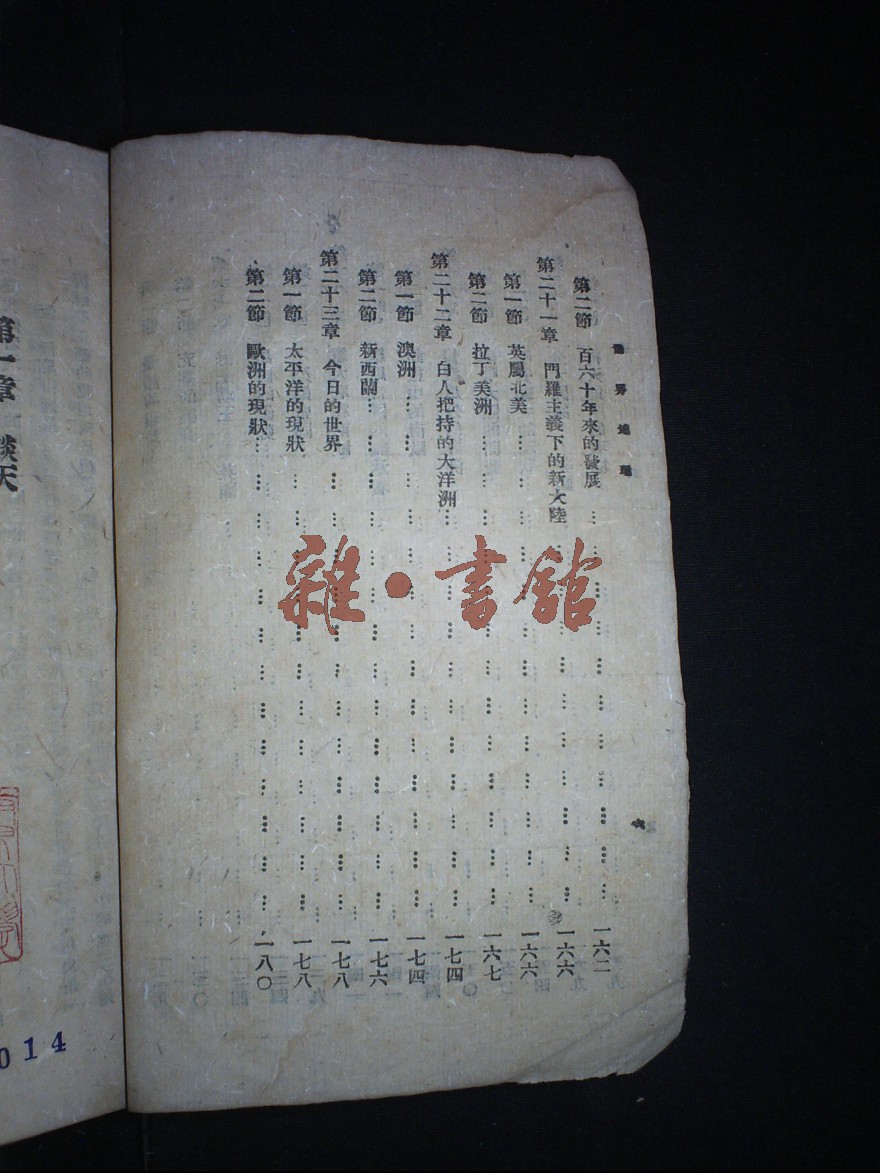 世界地理
六
第二節　百六十年來的發展………一六二
第二十一章　門羅主義下的新大陸………一六六
第一節　英屬北美………一六六
第二節　拉丁美洲………一六七
第二十二章　白人把持的大洋洲………一七四
第一節　澳洲………一七四
第二節　新西蘭………一七六
第二十三章　今日的世界………一七八
第一節　太平洋的現狀………一七八
第二節　歐洲的現狀………一八〇
雜·書館
第一章　談天
014